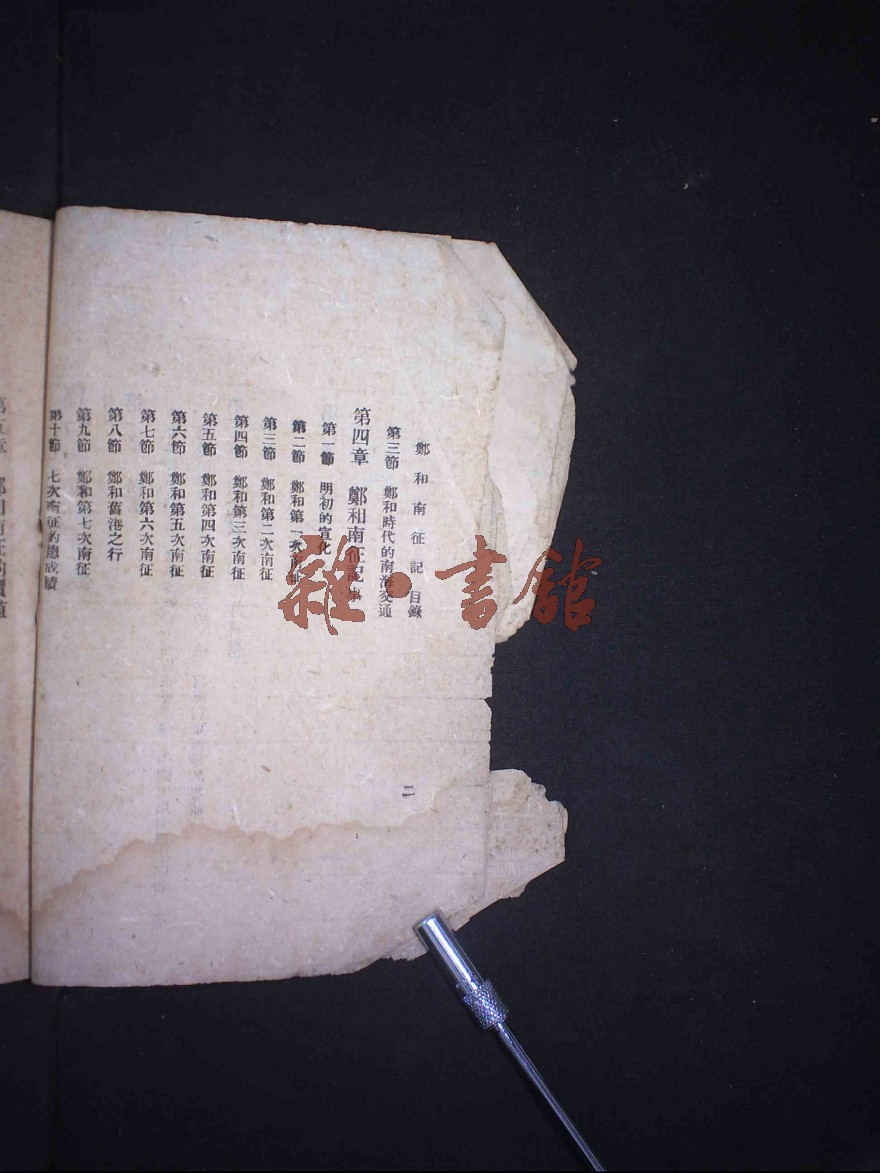 鄭和南征記 目錄
第三節 鄭和時代的南海交通
第四章 鄭和南征記事
第一節 明初的宣化
第二節 鄭和第一次南征
第三節 鄭和第二次南征
第四節 鄭和第三次南征
第五節 鄭和第四次南征
第六節 鄭和第五次南征
第七節 鄭和第六次南征
第八節 鄭和舊港之行
第九節 鄭和第七次南征
第十節 七次南征的總成績
二
雜·書館